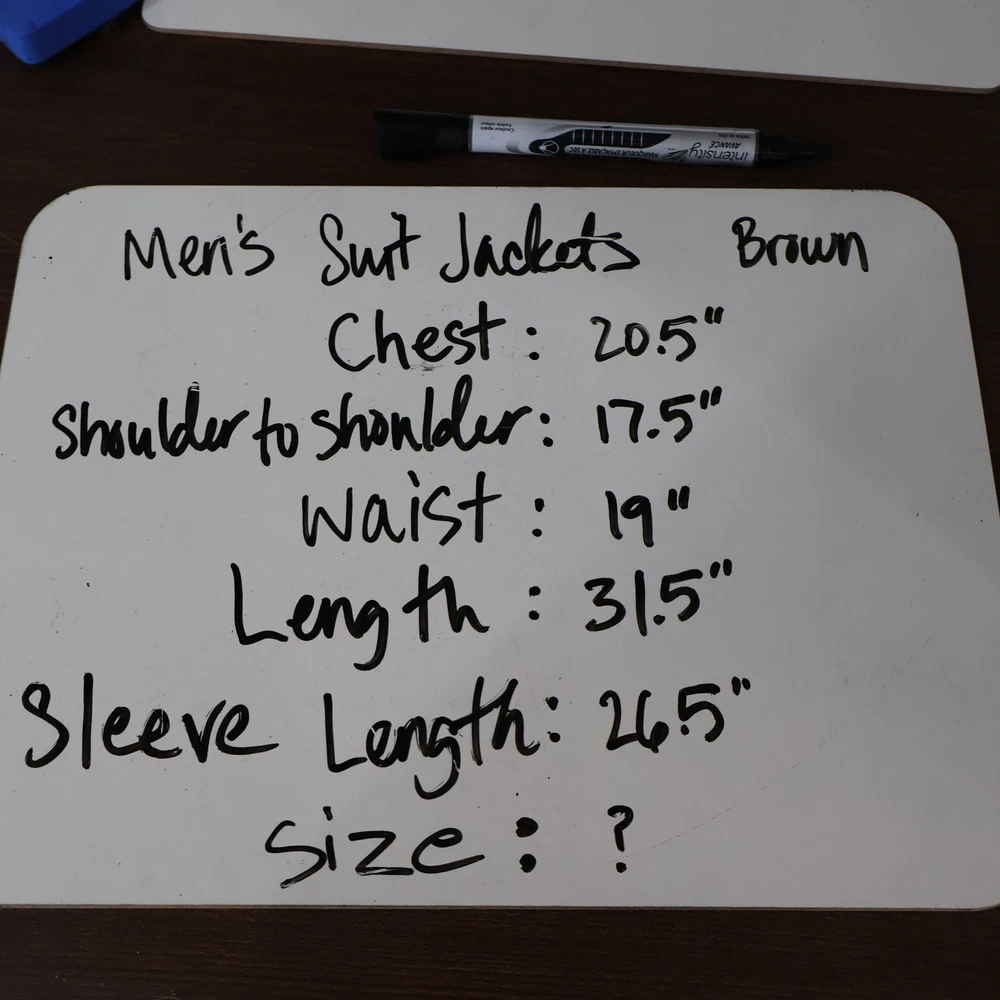 intensity
AVANCÉ
MARQUEUR EFFAÇABLE À SEC
Men's Suit Jackets Brown
Chest: 20.5"
Shoulder to shoulder: 17.5"
Waist: 19"
Length: 31.5"
Sleeve Length: 26.5"
Size: ?